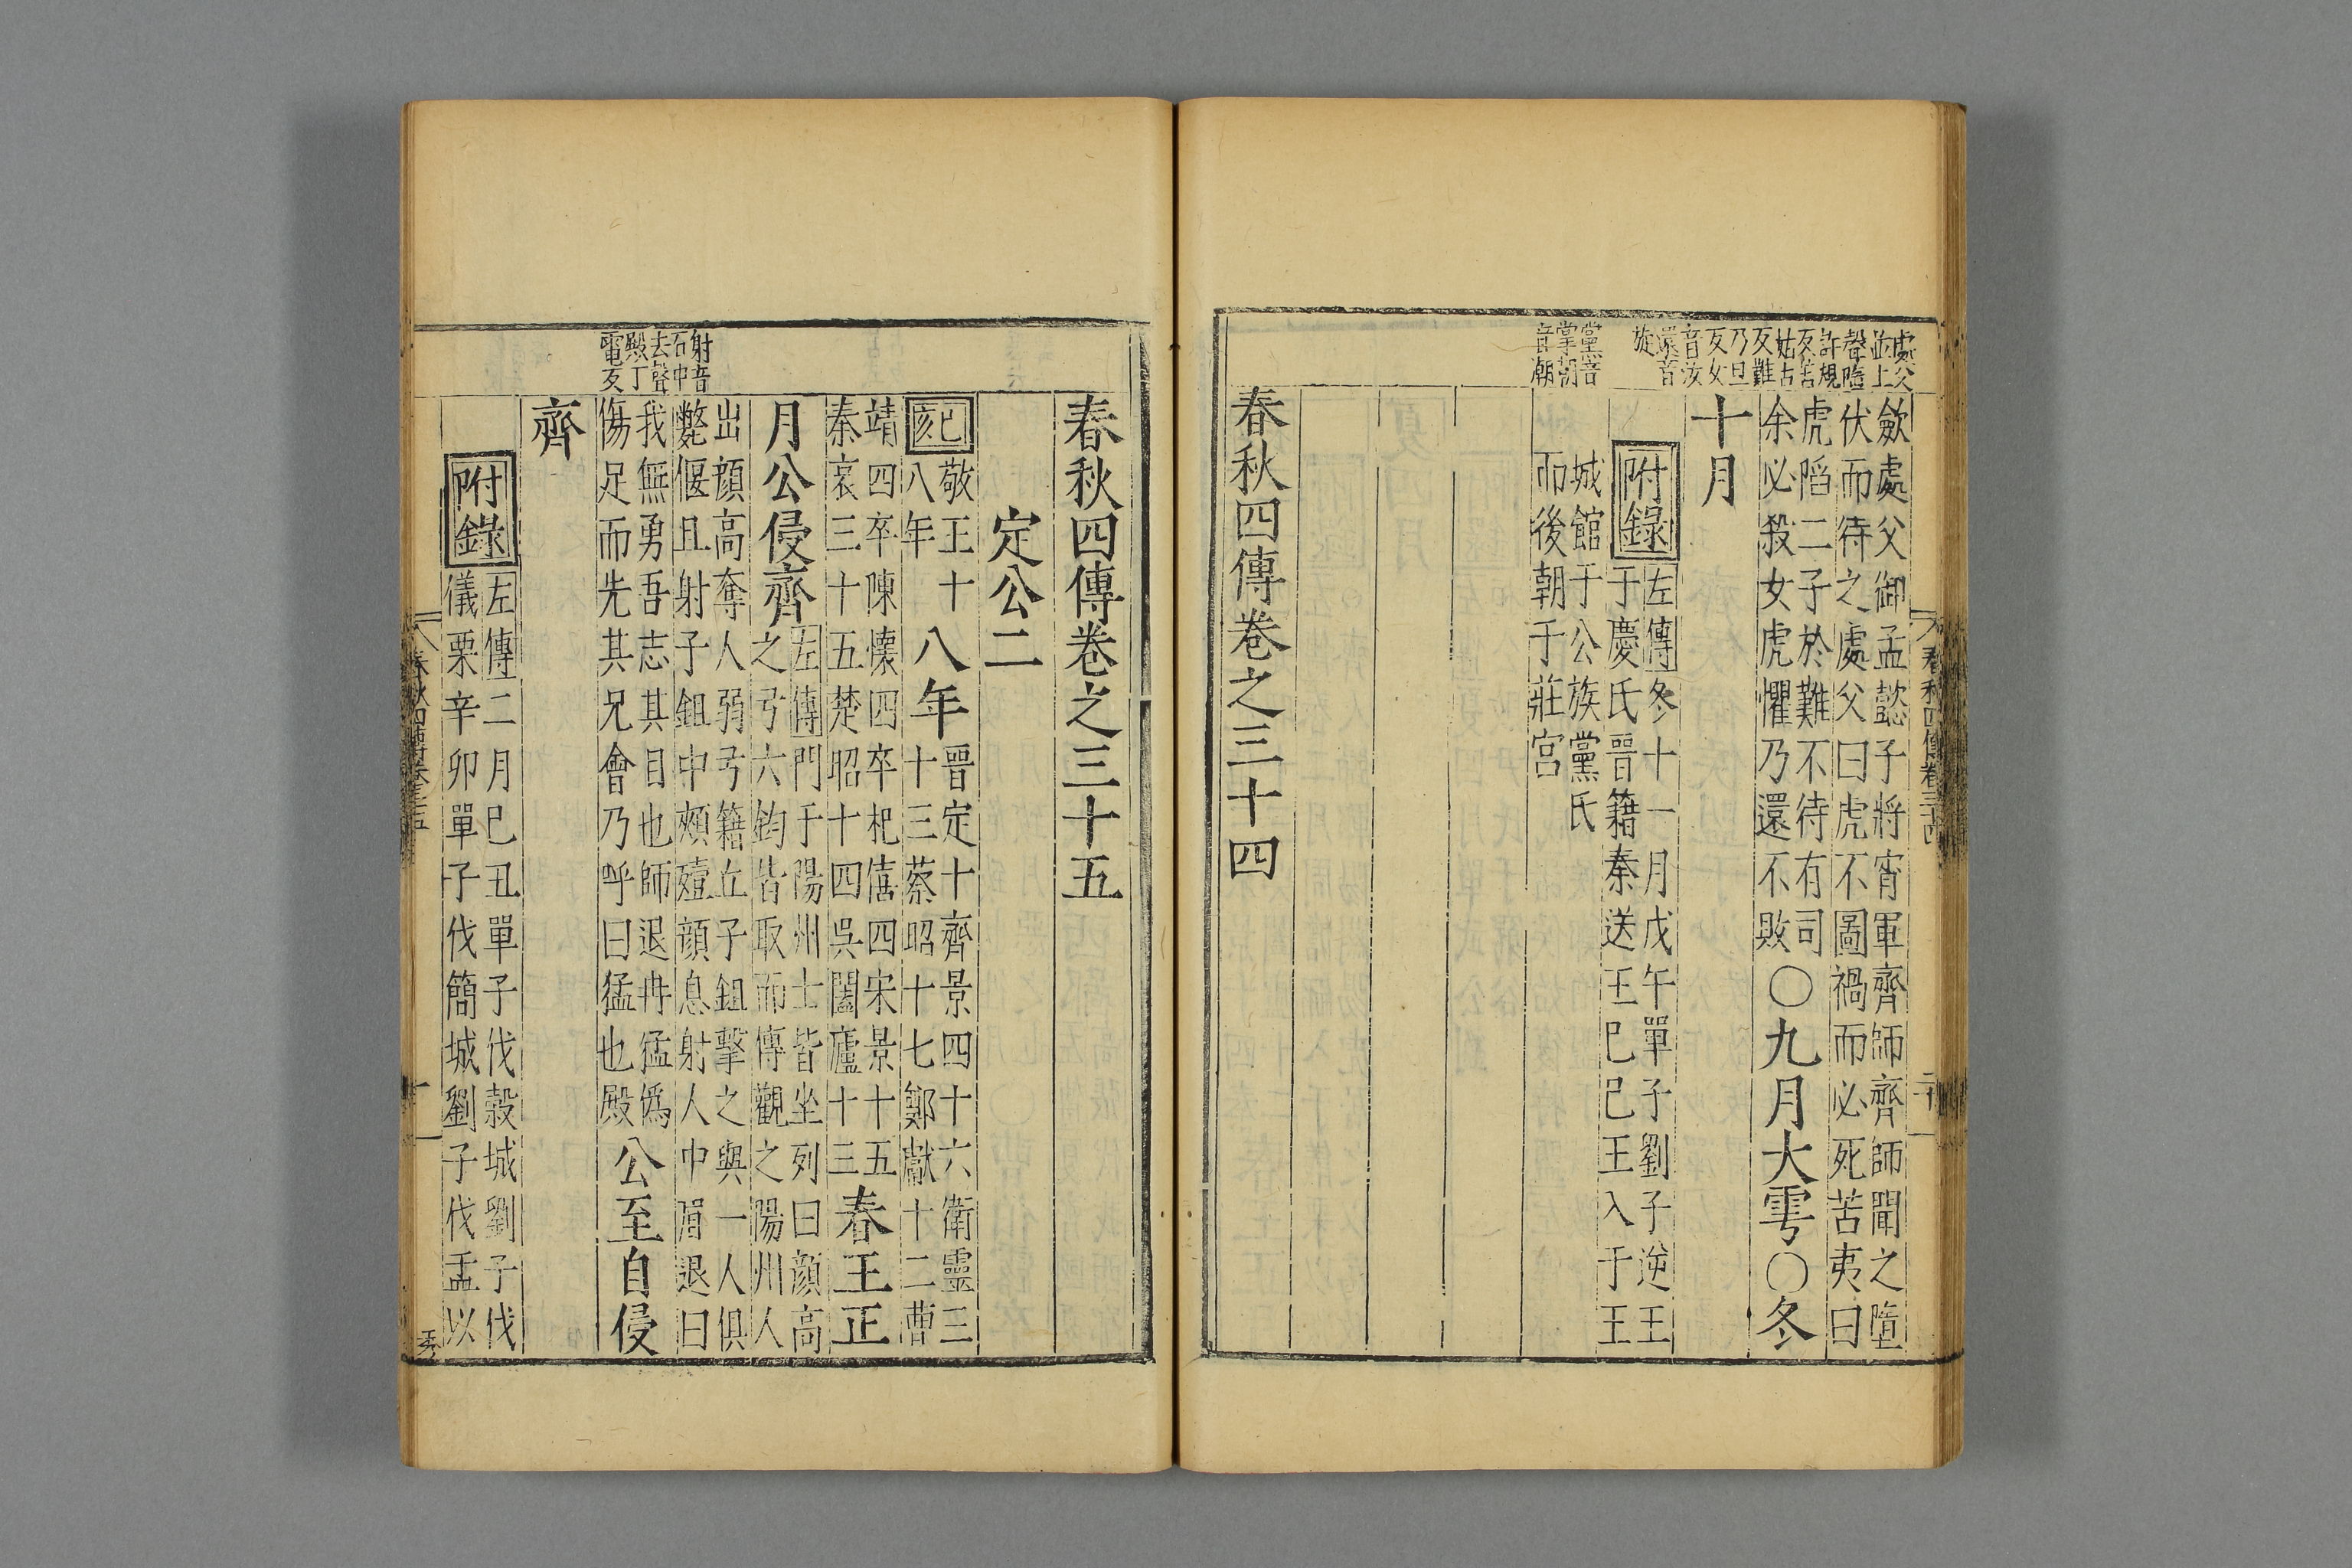 處父
並上
聲隋
許規
反苦
姑古
反難
乃旦
反女
音汝
還音
旋
黨音
掌朝
音潮
歛處父御孟懿子將宵軍齊師齊師聞之墮
伏而待之處父曰虎不圖禍而必死苫夷曰
虎陷二子於難不待有司
余必殺女虎懼乃還不敗
○九月大雩○冬
十月
附錄
左傳冬十一月戊午單子劉子逆王
于慶氏晉籍秦送王己巳王入于王
城館于公族黨氏
而後朝于莊宮
春秋四傳卷之三十四
春秋四傳卷三十四
二十
春秋四傳卷之三十五
定公二
己亥
敬王十
八年
八年
晉定十齊景四十六衛靈三
十三蔡昭十七鄭獻十二曹
靖四卒陳懷四卒杞僖四宋景十五
秦哀三十五楚昭十四吳闔廬十三
春王正
月公侵齊
左傳門于陽州士皆坐列曰顏高
之弓六鈞皆取而傳觀之陽州人
出顏高奪人弱弓籍丘子鉏擊之與一人俱
斃偃且射子鉏中頰殪顏息射人中眉退曰
我無勇吾志其目也師退冉猛偽
傷足而先其兄會乃呼曰猛也殿
公至自侵
齊
射音
石中
去聲
殿丁
電反
附錄
左傳二月己丑單子伐穀城劉子伐
儀栗辛卯單子伐簡城劉子伐盂以
春秋四傳卷三十五
一
秀